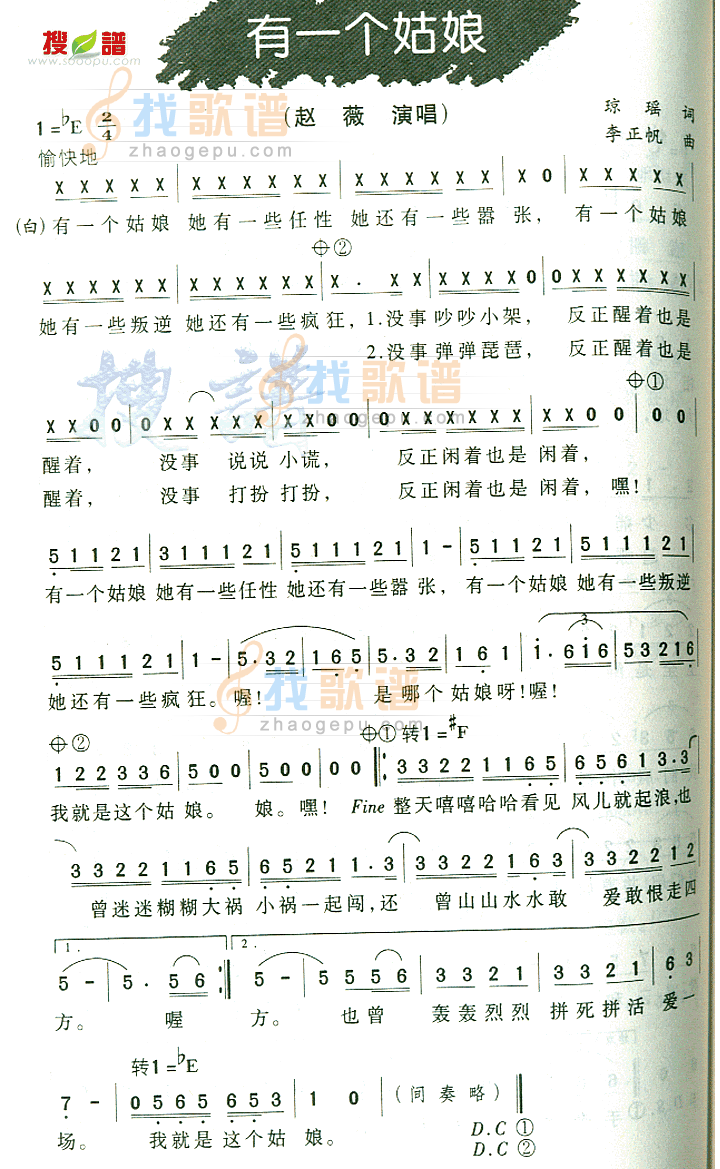 搜谱
www.sooopu.com
有一个姑娘
1=♭E 2/4
(赵 薇 演唱)
琼 瑶 词
李正帆 曲
愉快地
找歌谱
zhaogepu.com
X X X X X | X X X X X X | X X X X X X | X 0 | X X X X X
(白)有一个姑娘 她有一些任性 她还有一些嚣 张, 有一个姑娘
②
X X X X X X | X X X X X X | X . X X | X X X X X 0 | 0 X X X X X X
她有一些叛逆 她还有一些疯狂, 1.没事吵吵小架, 反正醒着也是
2.没事弹弹琵琶, 反正醒着也是
搜谱
找歌谱
zhaogepu.com
①
X X 0 0 | 0 X X X X X | X X 0 0 | 0 X X X X X X | X X 0 0 | 0 0
醒着, 没事 说说 小谎, 反正闲着也是 闲着,
醒着, 没事 打扮 打扮, 反正闲着也是 闲着, 嘿!
5 1 1 2 1 | 3 1 1 1 2 1 | 5 1 1 1 2 1 | 1 - | 5 1 1 2 1 | 5 1 1 1 2 1
有一个姑娘 她有一些任性 她还有一些嚣 张, 有一个姑娘 她有一些叛逆
5 1 1 1 2 1 | 1 - | 5. 3 2 | 1 6 5 | 5. 3 2 | 1 6 1 | i. 6 i 6 | 5 3 2 1 6
3
她还有一些疯狂。喔! 是哪个 姑娘呀!喔!
找歌谱
zhaogepu.com
② ① 转1=♯F
1 2 2 3 3 6 | 5 0 0 | 5 0 0 | 0 0 : 3 3 2 2 1 1 6 5 | 6 5 6 1 3. 3
我就是这个姑 娘。 娘。嘿! Fine 整天嘻嘻哈哈看见 风儿就起浪,也
3 3 2 2 1 1 6 5 | 6 5 2 1 1. 3 | 3 3 2 2 1 6 3 | 3 3 2 2 1 2
曾迷迷糊糊大祸 小祸一起闯,还 曾山山水水敢 爱敢恨走四
1. 2.
5 - | 5. 5 6 : 5 - | 5 5 5 6 | 3 3 2 1 | 3 3 2 1 | 6 3
方。 喔 方。 也曾 轰轰烈烈 拼死拼活 爱一
转1=♭E
7 - | 0 5 6 5 6 5 3 | 1 0 (间奏略)
场。 我就是 这个姑 娘。 D.C ①
D.C ②